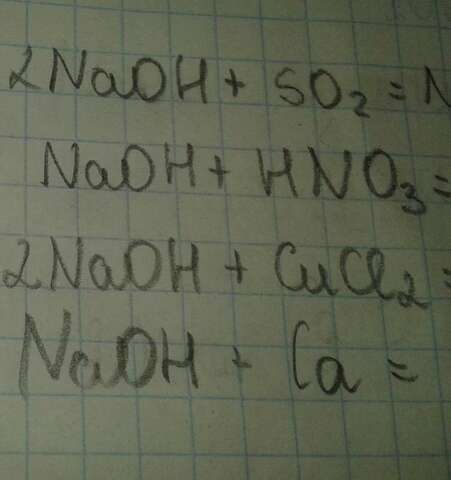 2NaOH + SO₂ = N
NaOH + HNO₃ =
2NaOH + CuCl₂ =
NaOH + Ca =